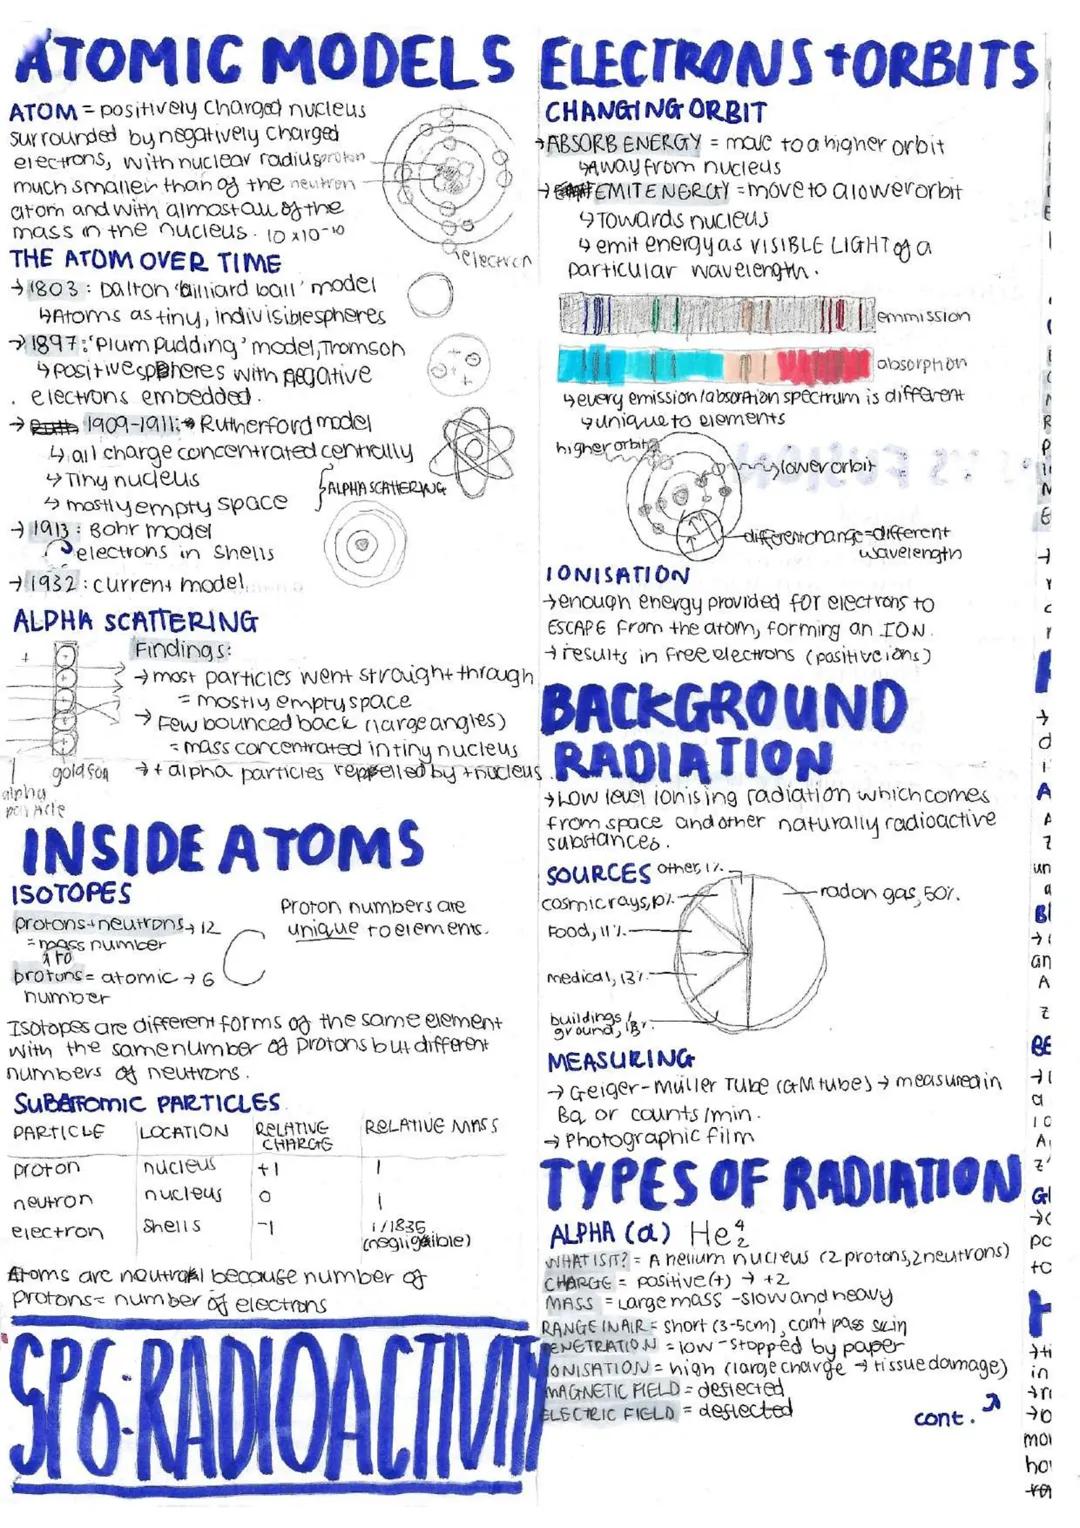 ATOMIC MODELS
ATOM = positively charged nucleus
surrounded by negatively charged
electrons, with nuclear radius
much smaller than of the
atom and with almost all of the
mass in the nucleus. 10 x10-10
proton
neutron
electron
THE ATOM OVER TIME
→ 1803: Dalton 'billiard ball' model
↳Atoms as tiny, indivisible spheres
→ 1897: 'Plum pudding' model, Thomson
↳ positive spheres with negative
electrons embedded.
→ 1909-1911: → Rutherford model
↳ all charge concentrated centrally
↳ Tiny nucleus
↳ mostly empty space
ALPHA SCATTERING
→ 1913: Bohr model
electrons in shells
→ 1932: current model
ALPHA SCATTERING
Findings:
→ most particles went straight through
= mostly empty space
→ Few bounced back (large angles)
= mass concentrated in tiny nucleus
→ + alpha particles repelled by + nucleus.
gold foil
alpha
particle
INSIDE ATOMS
ISOTOPES
protons+neutrons → 12
= mass number
protons = atomic → 6
number
C
Proton numbers are
unique to elements.
Isotopes are different forms of the same element
with the same number of protons but different
numbers of neutrons.
SUBATOMIC PARTICLES
PARTICLE LOCATION RELATIVE CHARGE RELATIVE MASS
proton nucleus +1 1
neutron nucleus 0 1
electron shells -1 1/1835 (negligible)
Atoms are neutral because number of
protons = number of electrons
SP6: RADIOACTIVITY
ELECTRONS + ORBITS
CHANGING ORBIT
→ ABSORB ENERGY = move to a higher orbit
↳ Away from nucleus
→ EMIT ENERGY = move to a lower orbit
↳ Towards nucleus
↳ emit energy as VISIBLE LIGHT of a
particular wavelength.
emmission
absorption
↳ every emission/absorption spectrum is different
↳ unique to elements
higher orbit
lower orbit
different change = different
wavelength
IONISATION
→ enough energy provided for electrons to
ESCAPE from the atom, forming an ION.
→ results in free electrons (positive ions)
BACKGROUND
RADIATION
→ Low level ionising radiation which comes
from space and other naturally radioactive
substances.
SOURCES
other, 1%.
cosmic rays, 10%.
radon gas, 50%.
Food, 11%.
medical, 13%.
buildings/
ground,
MEASURING
→ Geiger-Müller Tube (GM tubes) → measured in
Bq or counts/min.
→ Photographic film
TYPES OF RADIATION
ALPHA (α) He 4 2
WHAT IS IT? = A helium nucleus (2 protons, 2 neutrons)
CHARGE = positive (+) → +2
MASS = Large mass - slow and heavy
RANGE IN AIR = short (3-5cm), can't pass skin
PENETRATION = low - stopped by paper
IONISATION = high (large charge → tissue damage)
MAGNETIC FIELD = deflected
ELECTRIC FIELD = deflected
cont.